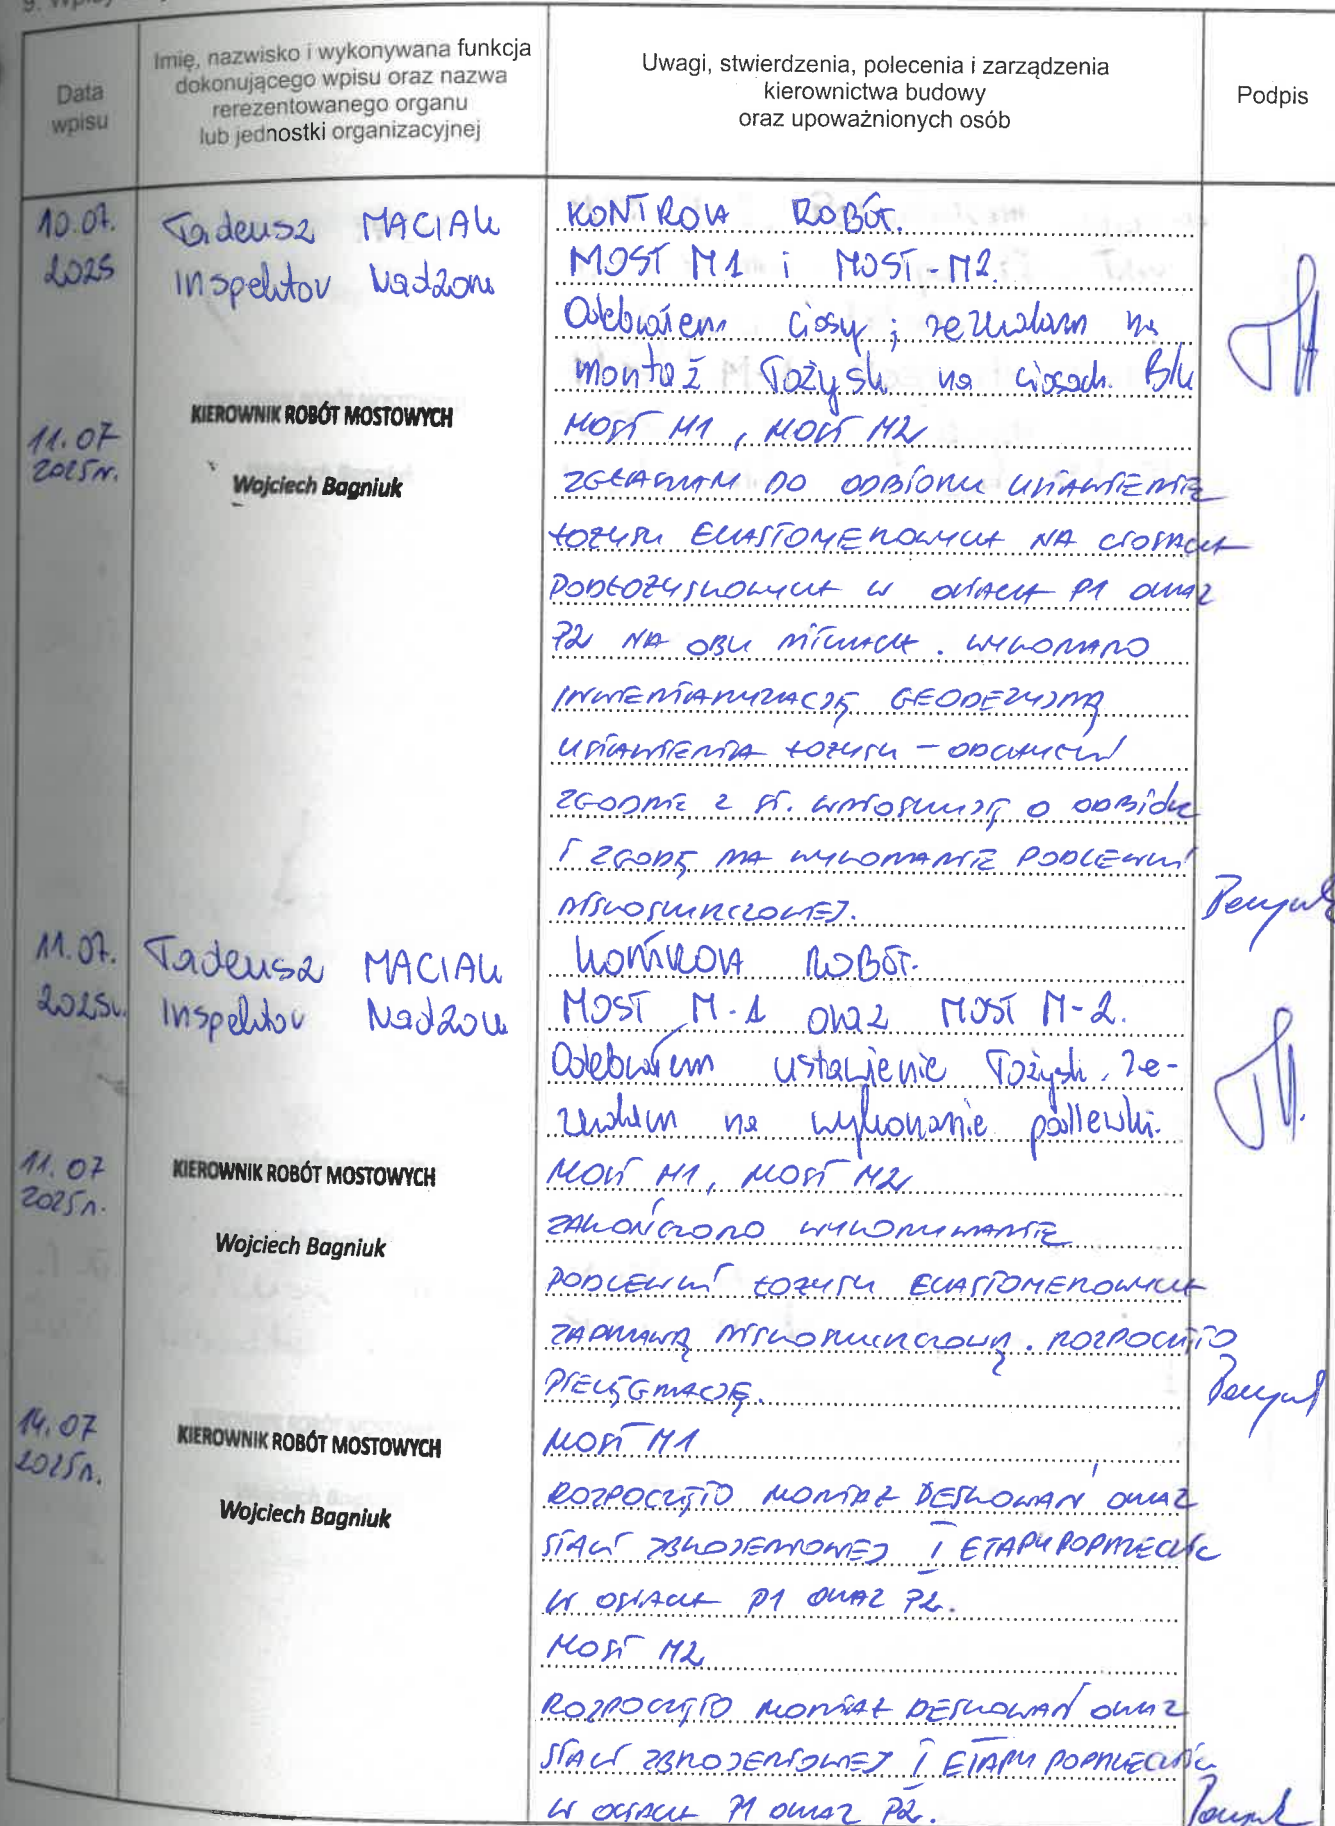 9. Wpisy
Data
wpisu
Imię, nazwisko i wykonywana funkcja
dokonującego wpisu oraz nazwa
rerezentowanego organu
lub jednostki organizacyjnej
Uwagi, stwierdzenia, polecenia i zarządzenia
kierownictwa budowy
oraz upoważnionych osób
Podpis
10.07.
2025
Tadeusz MACIAK
Inspektor Nadzoru
KONTROLA ROBÓT.
MOST M1 i MOST-M2.
Odebrałem ciosy; zezwalam na
montaż łożysk na ciosach.
11.07
2025r.
KIEROWNIK ROBÓT MOSTOWYCH
Wojciech Bagniuk
MOST M1, MOST M2
ZGŁASZAM DO ODBIORU USTAWIENIE
ŁOŻYSK ELASTOMEROWYCH NA CIOSACH
PODŁOŻYSKOWYCH W OSIACH P1 ORAZ
P2 NA OBU NITKACH. WYKONANO
INWENTARYZACJĘ GEODEZYJNĄ
USTAWIENIA ŁOŻYSK - ODCHYŁKI
ZGODNIE Z ST. WNIOSKUJĘ O ODBIÓR
I ZGODĘ NA WYKONANIE PODLEWKI
NISKOSKURCZOWEJ.
11.07.
2025r.
Tadeusz MACIAK
Inspektor Nadzoru
KONTROLA ROBÓT.
MOST M-1 oraz MOST M-2.
Odebrałem ustawienie łożysk, ze-
zwalam na wykonanie podlewki.
11.07
2025r.
KIEROWNIK ROBÓT MOSTOWYCH
Wojciech Bagniuk
MOST M1, MOST M2
ZAKOŃCZONO WYKONYWANIE
PODLEWKI ŁOŻYSK ELASTOMEROWYCH
ZAPRAWĄ NISKOSKURCZOWĄ. ROZPOCZĘTO
PIELĘGNACJĘ.
14.07
2025r.
KIEROWNIK ROBÓT MOSTOWYCH
Wojciech Bagniuk
MOST M1
ROZPOCZĘTO MONTAŻ DESKOWAŃ ORAZ
STALI ZBROJENIOWEJ I ETAPU POPRZECZNIC
W OSIACH P1 ORAZ P2.
MOST M2
ROZPOCZĘTO MONTAŻ DESKOWAŃ ORAZ
STALI ZBROJENIOWEJ I ETAPU POPRZECZNIC
W OSIACH P1 ORAZ P2.